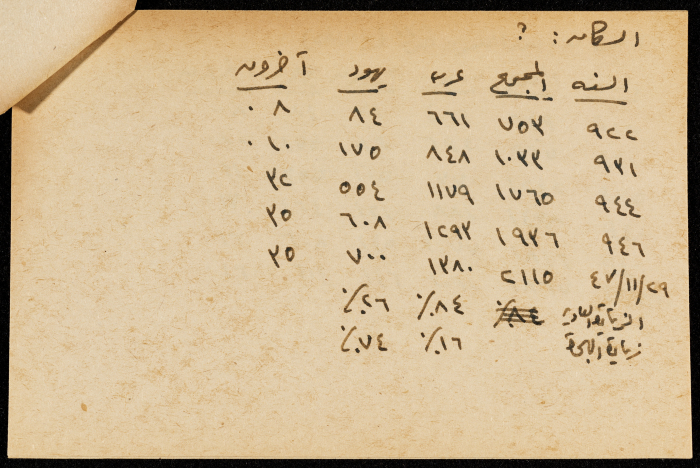 السكان : ؟
السنه المجموع عرب يهود آخرون
٩٢٢ ٧٥٣ ٦٦١ ٨٤ ٠٨
٩٣١ ١٠٣٣ ٨٤٨ ١٧٥ ٠١٠
٩٤٤ ١٧٦٥ ١١٧٩ ٥٥٤ ٣٢
٩٤٦ ١٩٣٦ ١٢٩٣ ٦٠٨ ٣٥
٤٧/١١/٢٩ ٢١١٥ ١٣٨٠ ٧٠٠ ٣٥
الزيادة العادية ٨٤٪ ٨٤٪ ٢٦٪
زيادة الهجرة ١٦٪ ٧٤٪